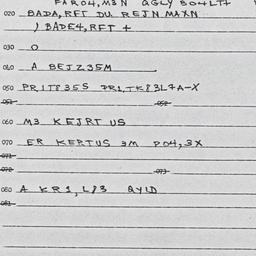 FAR04, M3N QGLY BO4LT+
020 BADA, RFT DU REJN MAXN
) BADE4, RFT +
030 O
040 A BEJZ35M
050 PRIT8355 PR1, TK83L4A-X
051 052
060 M3 KEJRT US
070 ER KERTUS 3M PO4, 3X
071
072 073
080 A KR1, L83 QYLD
081